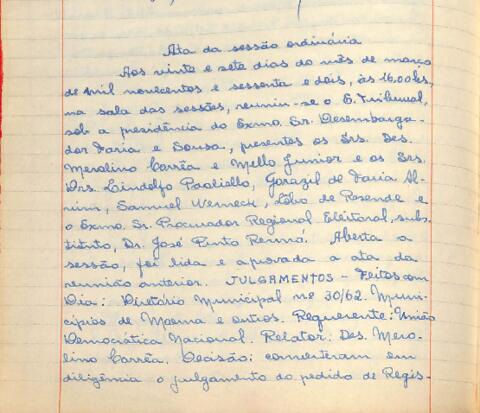 Ata da sessão ordinária
Aos vinte e sete dias do mês de março
de mil novecentos e sessenta e dois, às 16,00 hs,
na sala das sessões, reuniu-se o E. Tribunal,
sob a presidência do Exmo. Sr. Desembarga-
dor Faria e Sousa, presentes os Srs. Des.
Merolino Corrêa e Mello Junior e os Srs.
Drs. Lindolfo Paoliello, Gorazil de Faria Al-
vim, Samuel Werneck, Lôbo de Rezende e
o Exmo. Sr. Procurador Regional Eleitoral, subs-
tituto, Dr. José Pinto Rennó. Aberta a
sessão, foi lida e aprovada a ata da
reunião anterior. JULGAMENTOS - Feitos com
Dia: Diretório Municipal nº 30/62. Muni-
cípios de Moema e outros. Requerente: União
Democrática Nacional. Relator: Des. Mero-
lino Corrêa. Decisão: converteram em
diligência o julgamento do pedido de Regis-